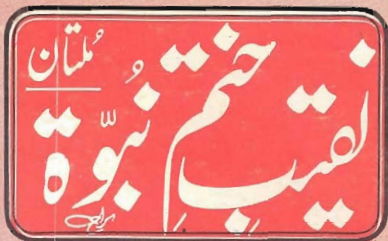 نقیبِ ختمِ نُبوّة
مُلتان